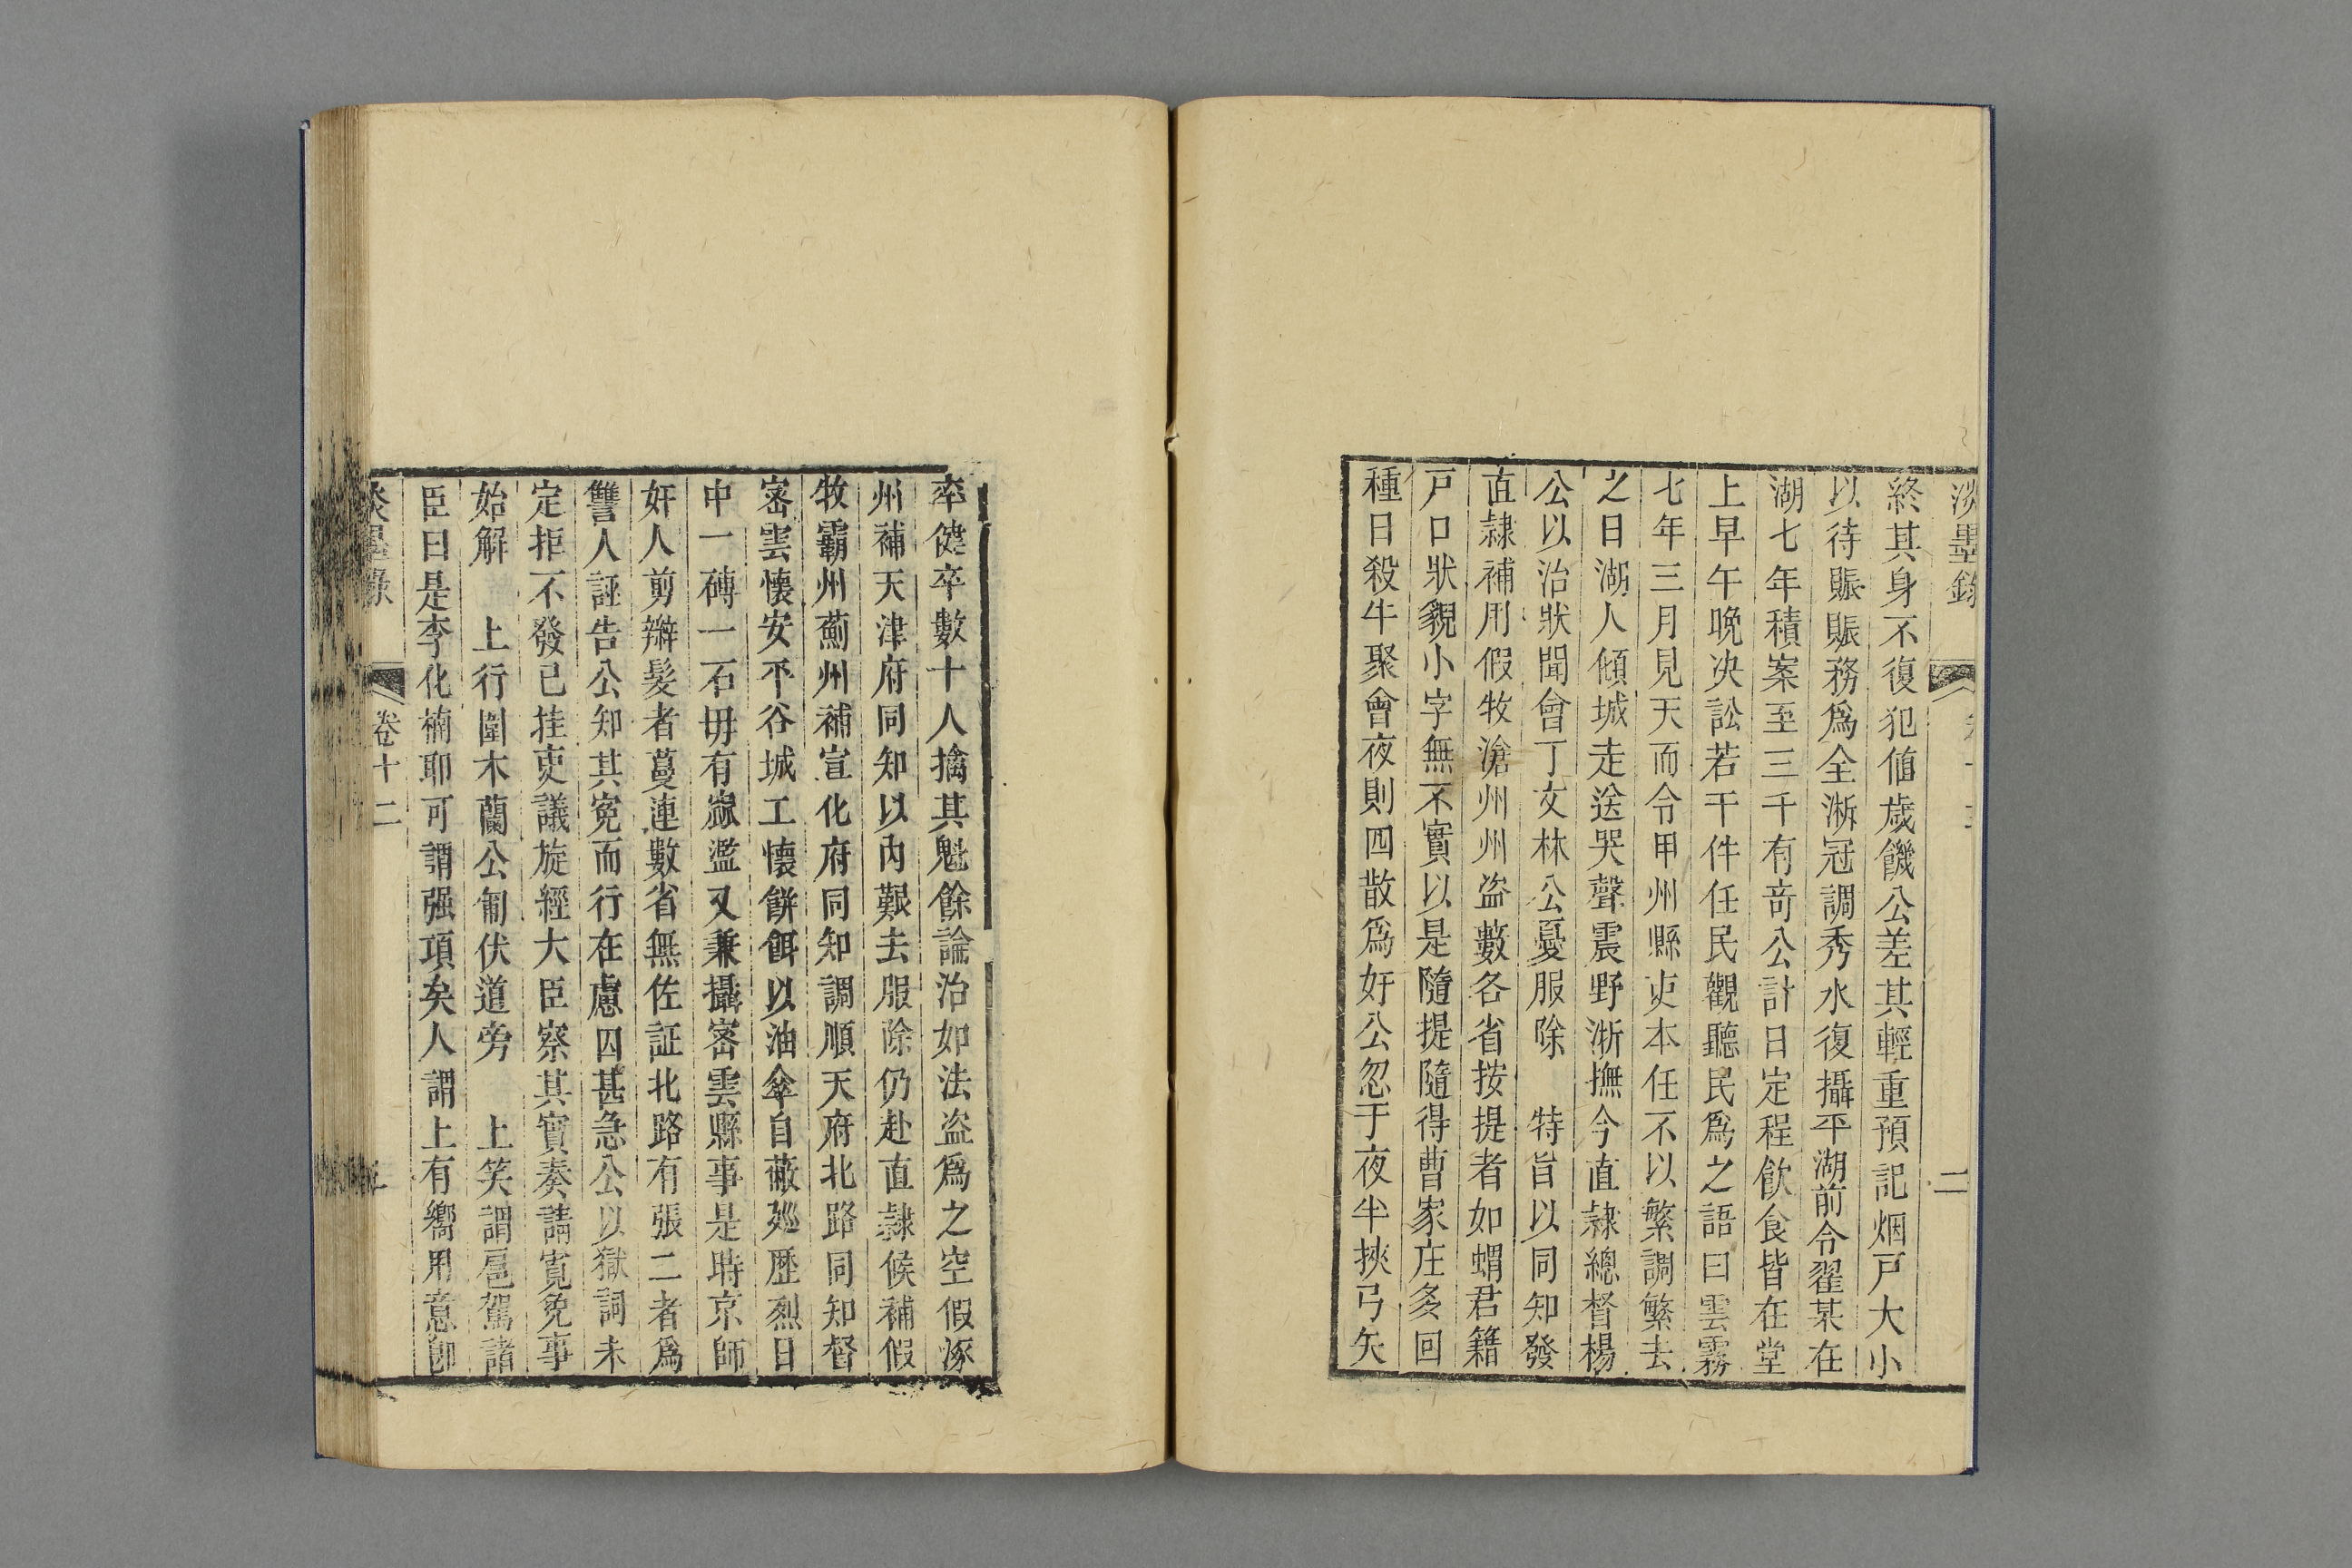 淡墨錄
二
終其身不復犯值歲饑公差其輕重預記烟戸大小
以待賑賑務爲全浙冠調秀水復攝平湖前令翟某在
湖七年積案至三千有竒公計日定程飮食皆在堂
上早午晩决訟若干件任民觀聽民爲之語曰雲霧
七年三月見天而令甲州縣吏本任不以繁調繁去
之日湖人傾城走送哭聲震野浙撫今直隷總督楊
公以治狀聞會丁文林公憂服除　特旨以同知發
直隷補用假牧滄州州盜藪各省按提者如蝟君籍
戸口狀貌小字無不實以是隨提隨得曹家庄多回
種日殺牛聚會夜則四散爲奸公忽于夜半挾弓矢
率健卒數十人擒其魁餘論治如法盜爲之空假涿
州補天津府同知以内艱去服除仍赴直隷候補假
牧霸州薊州補宣化府同知調順天府北路同知督
密雲懷安平谷城工懷餅餌以油傘自蔽廵歷烈日
中一磚一石毋有窳濫又兼攝密雲縣事是時京師
奸人剪辮髮者蔓連數省無佐証北路有張二者爲
讐人誣告公知其寃而行在慮囚甚急公以獄詞未
定拒不發已挂吏議旋經大臣察其實奏請寬免事
始解　上行圍木蘭公匍伏道旁　上笑謂扈駕諸
臣曰是李化楠耶可謂强項矣人謂上有嚮用意卽
卷十二